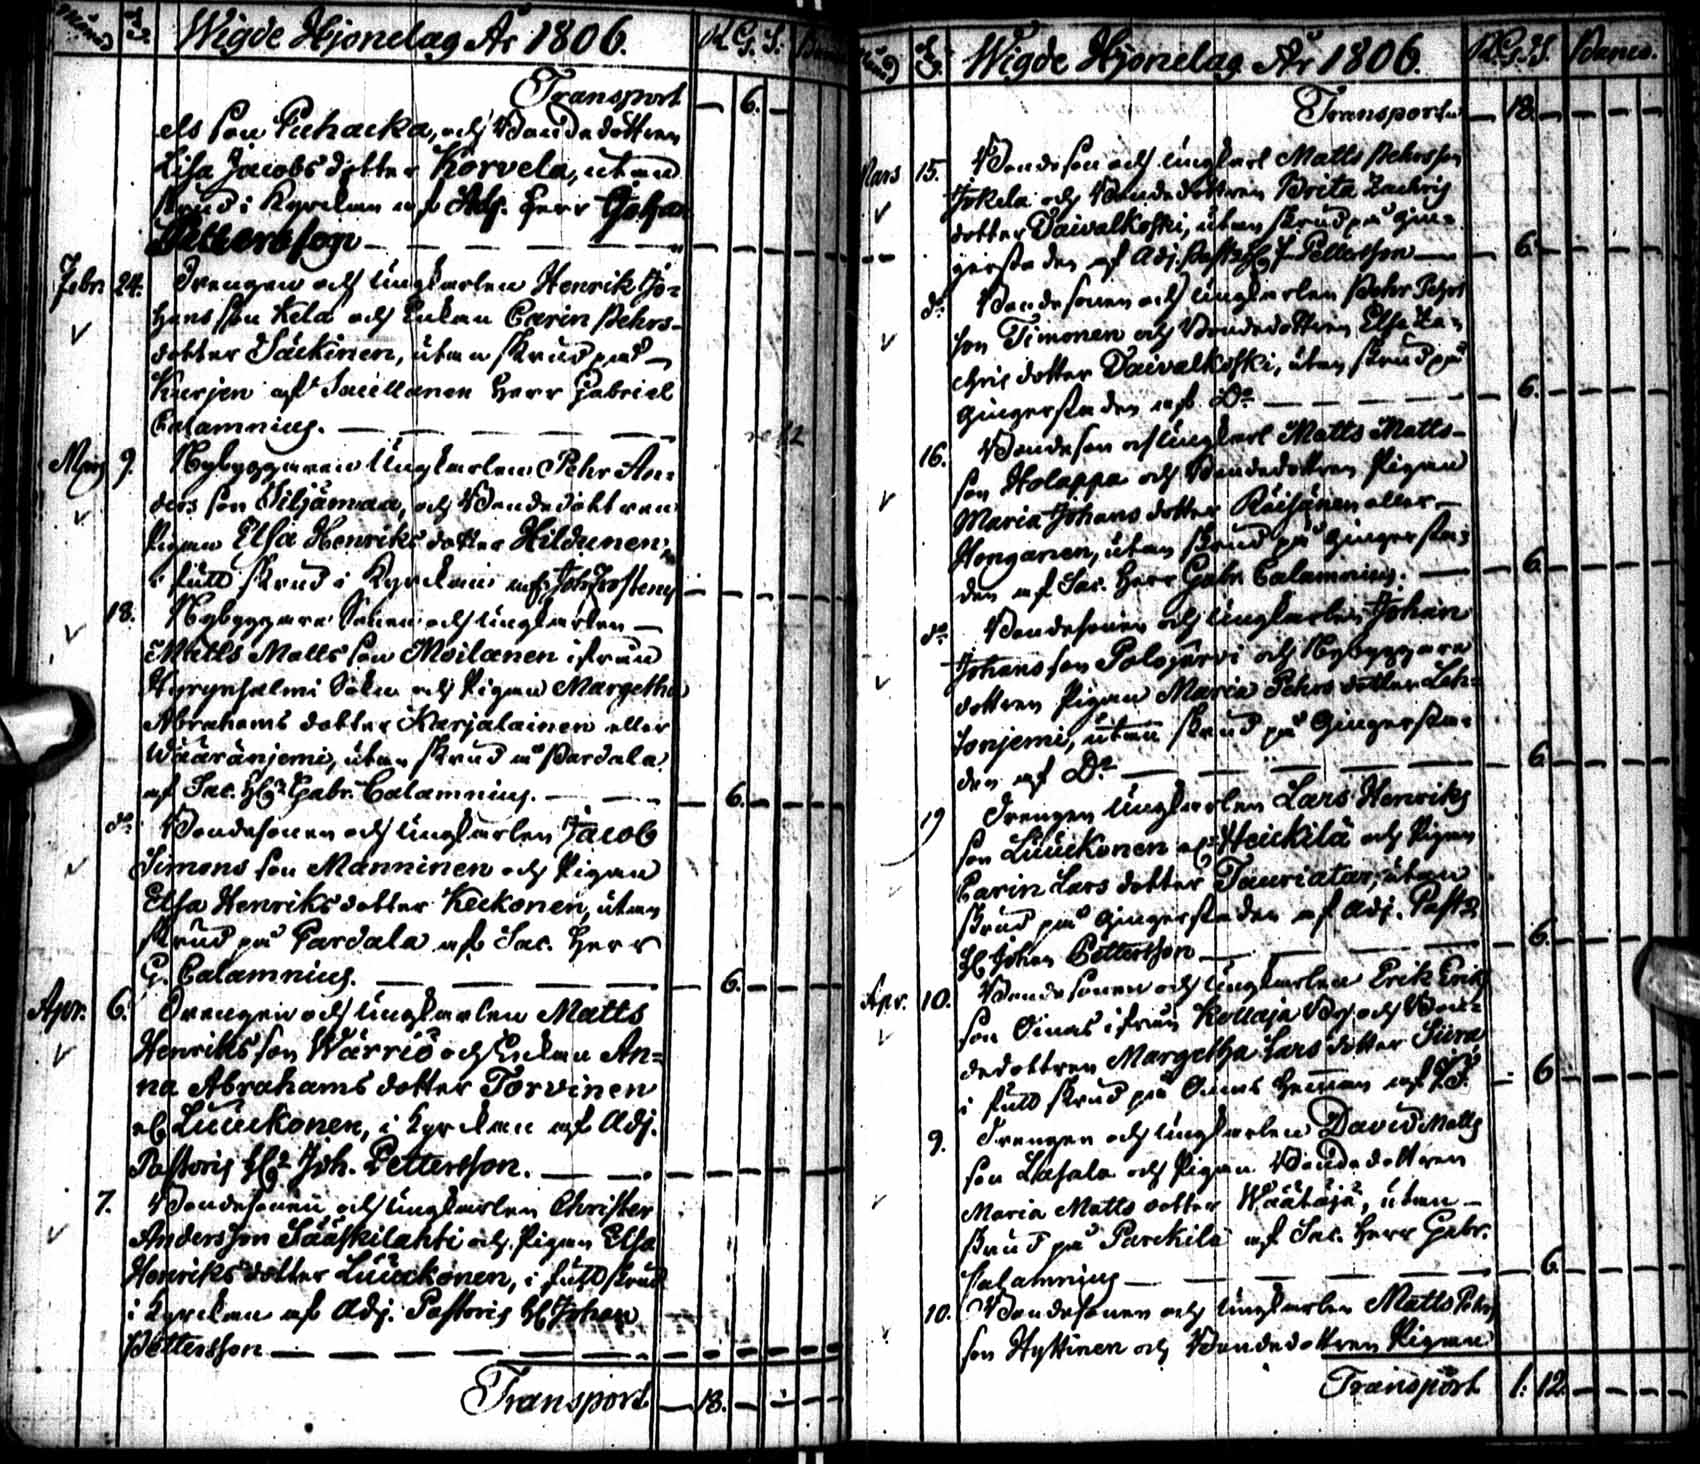 Månad Wigde Hjonelag År 1806. R. G. S. Banco
Transport — 6. —
els son Puhacka, och Bondedottren
Lisa Jacobs dotter Korvela, utan
skrud i Kyrckan af Adj. Herr Johan
Pettersson — — — —
Febr. 24. Drengen och Ungkarlen Henrik Jo=
hans son Kela och Enkan Carin Pehrs-
dotter Säckinen, utan skrud
Kurjen af Sacellanen Herr Gabriel
Calamnius. — — — —
Mars 9. Nybyggaren Ungkarlen Pehr An=
ders son Siljämaa, och Bondedottren
Pigan Elsa Henriks dotter Hildunen,
i full skrud i Kyrckan af
18. Nybyggare Sonen och Ungkarlen —
Matts Matts son Moilanen ifrån
Hyrynsalmi Sokn och Pigan Margetha
Abrahams dotter Karjalainen eller
Wääränjemi, utan skrud å Pardala
af Sac. Hr Gabr. Calamnius. — — 6. —
do. Bondesonen och Ungkarlen Jacob
Simons son Manninen och Pigan
Elsa Henriks dotter Keckonen, utan
skrud på Pardala af Sac. Herr
G. Calamnius. — — — 6. —
Apr. 6. Drengen och Ungkarlen Matts
Henriks son Wärriö och Enkan An=
na Abrahams dotter Torvinen
el. Luuckonen, i Kyrckan af Adj.
Pastoris Hr Joh. Pettersson. — — —
7. Bondesonen och Ungkarlen Christer
Andersson Sääskilahti och Pigan Elsa
Henriks dotter Luuckonen, i full skrud
i Kyrckan af Adj. Pastoris Hr Johan
Pettersson — — — —
Transport — 18. — — —
Wigde Hjonelag År 1806. R. G. S. Banco.
Transport — 18. — —
Mars 15. Bondeson och Ungkarl Matts Pehrsson
Jokela och Bondedottren Brita Zachris
dotter Taivalkoski, utan skrud på Gin=
gerstaden af Adj. Past. Hr J. Pettersson — 6. —
do. Bondesonen och Ungkarlen Pehr Pehrs
son Timonen och Bondedottren Elsa Za=
chris dotter Taivalkoski, utan skrud på
Gingerstaden af Do — — 6. —
16. Bondeson och Ungkarl Matts Matts-
son Holappa och Bondedottren Pigan
Maria Johans dotter Räisänen eller —
Honganen, utan skrud på Gingersta=
den af Sac. Herr Gabr. Calamnius. — 6. —
do. Bondesonen och Ungkarlen Johan
Johans son Polojärvi och Nybyggare
dottren Pigan Maria Pehrs dotter Leh=
tonjemi, utan skrud på Gingersta=
den af Do — — 6. —
19 Drengen Ungkarlen Lars Henriks
son Luuckonen el. Heickilä och Pigan
Carin Lars dotter Tauriatar, utan
skrud på Gingerstaden af Adj. Past.
Hr Johan Pettersson — — 6. —
Apr. 10. Bondesonen och Ungkarlen Erik Eriks
son Oinas ifrån Kollaja By och Bon=
dedottren Margetha Lars dotter Siira
i full skrud på Oinas Heman af — 6 —
9. Drengen och Ungkarlen David Matts
son Lasala och Pigan Bondedottren
Maria Matts dotter Wäätäjä, utan —
skrud på Parckila af Sac. Herr Gabr.
Calamnius — — 6. —
10. Bondesonen och Ungkarlen Matts Pehrs
son Hyttinen och Bondedottren Pigan
Transport 1. 12. — — —